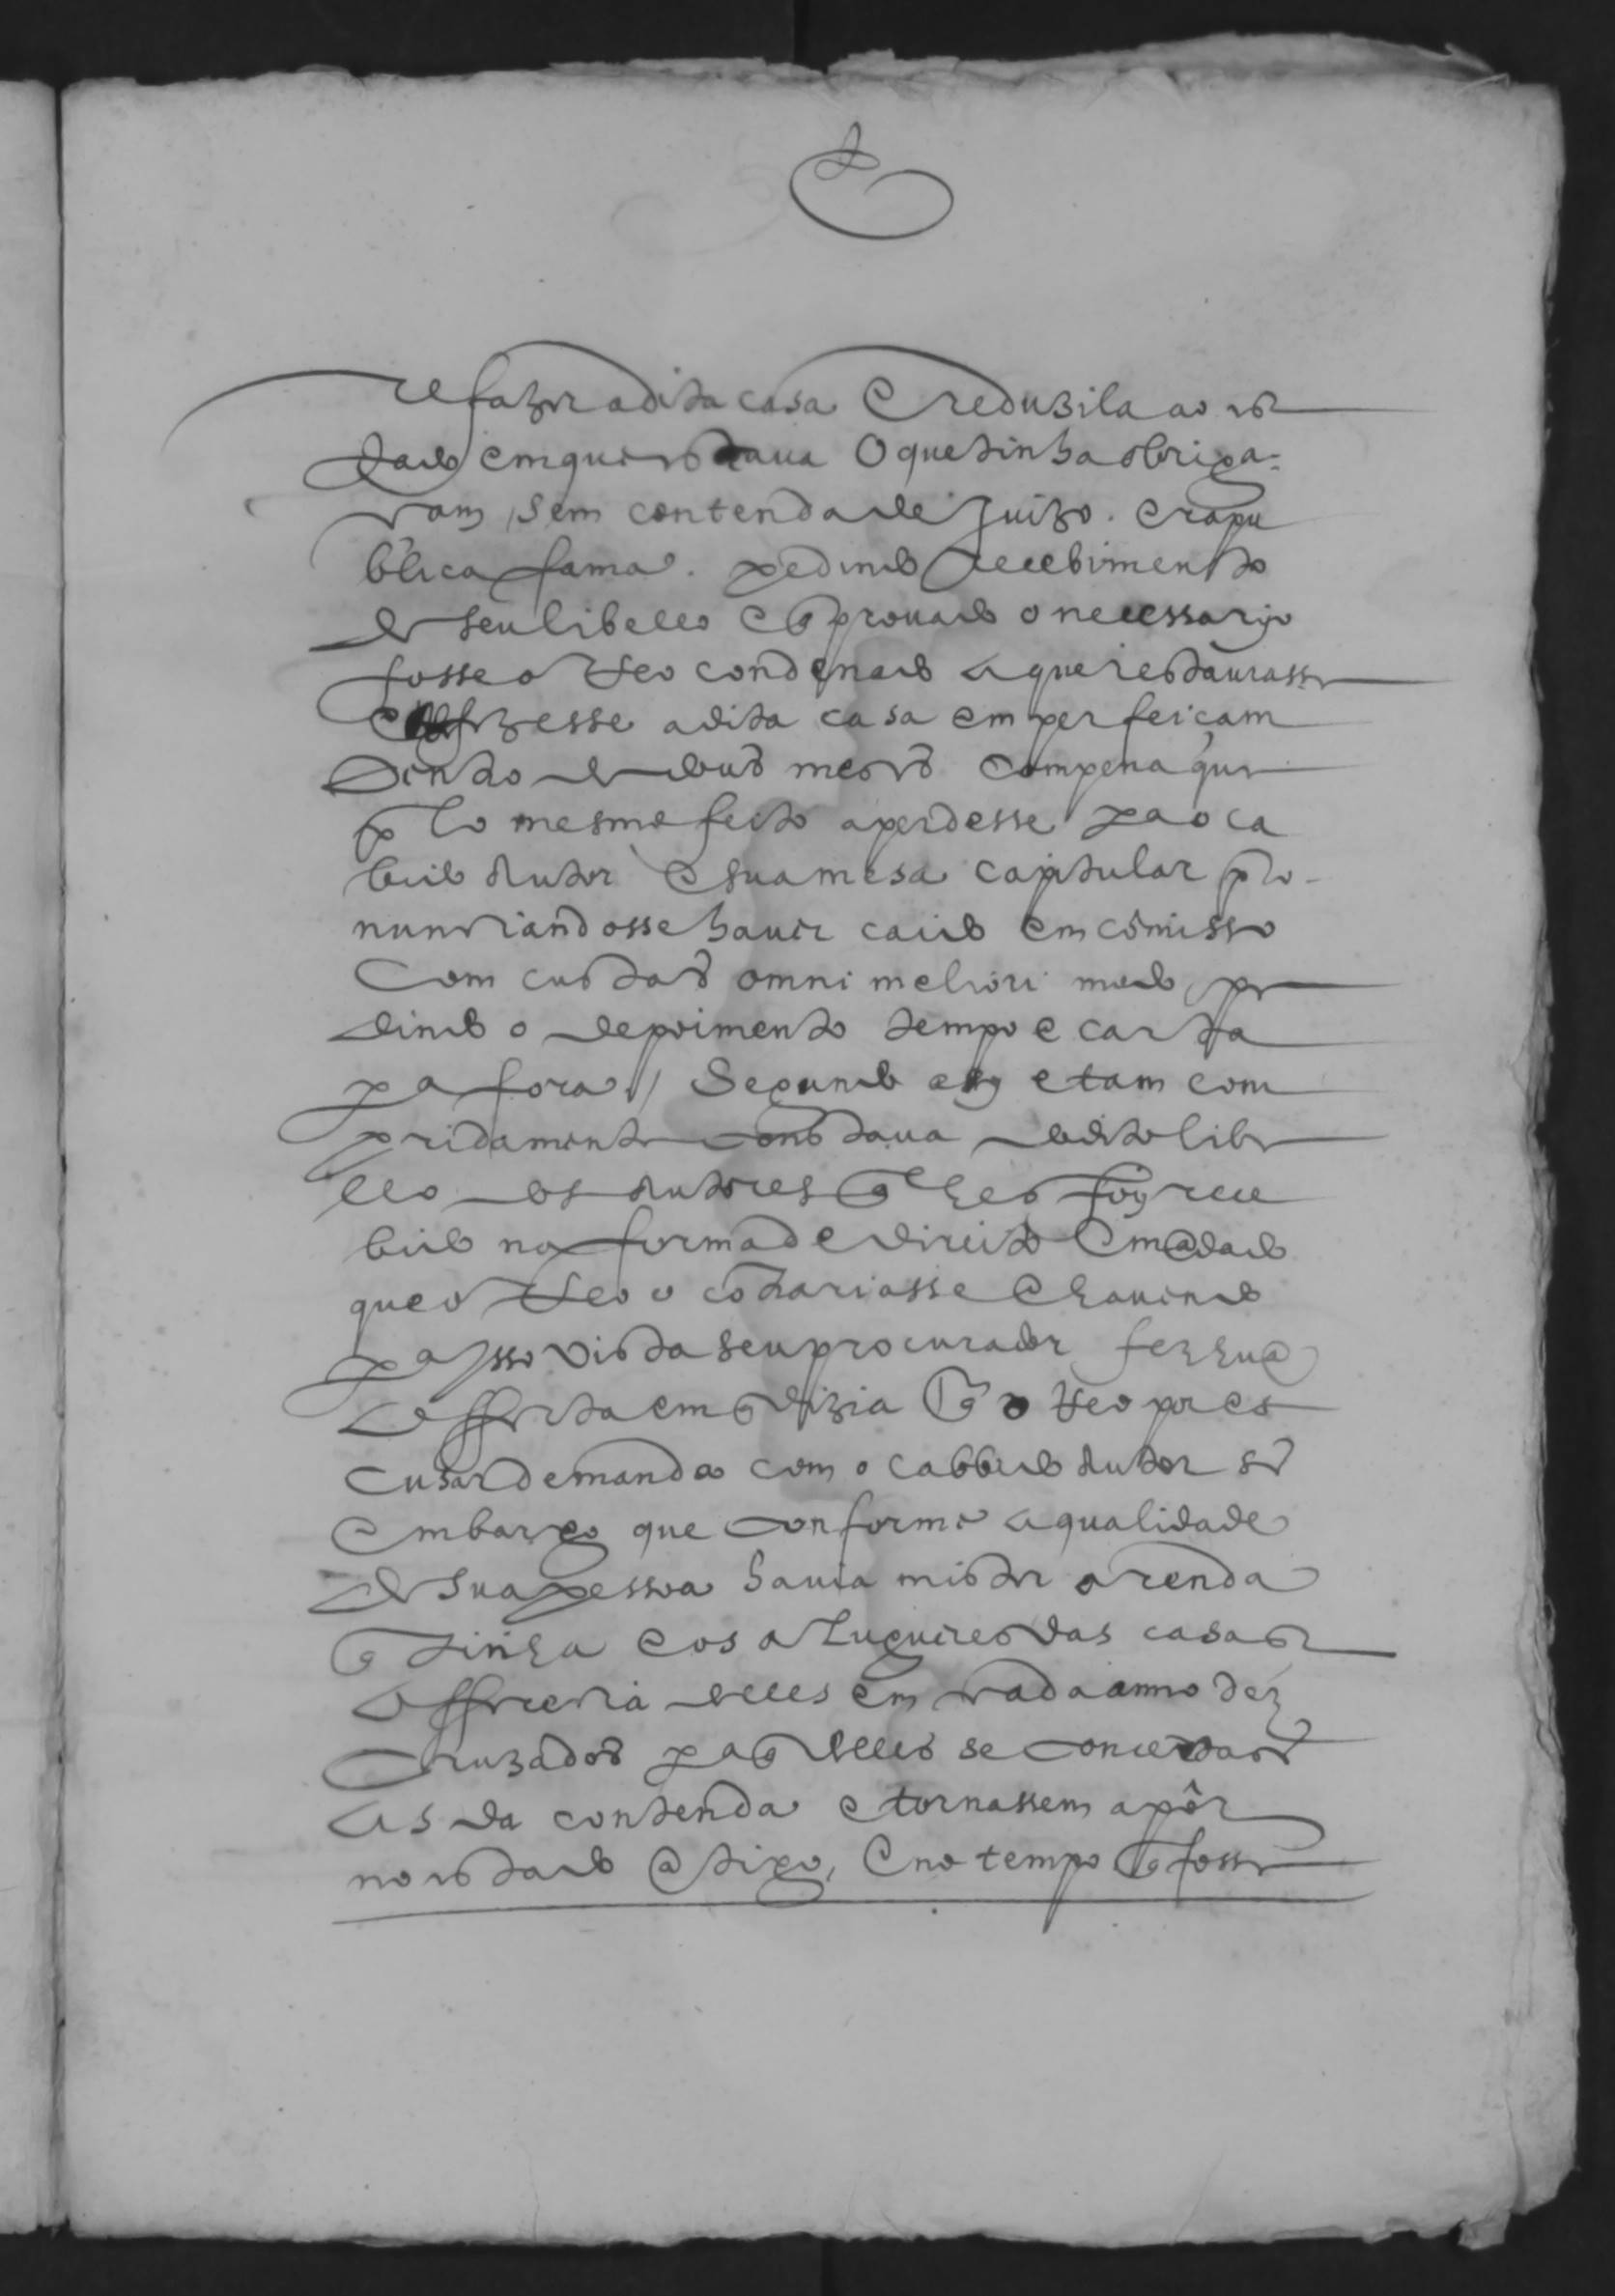 refazer a dita casa e reduzila ao es
tado em que estaua o que tinha obriga-
cam, sem contenda de Juizo. era pu
blica fama. pedindo recebimento
de seu libello e q̃ prouado o necessario
fosse o Reo condenado a que restaurasse
e fizesse a dita casa em perfeicam
dentro de dous meses com pena que
p lo mesmo feito a perdesse pa o ca
bido Autor e sua mesa capitular pro-
nunciandosse hauer caido em cõmisso
com custas omni meliori modo, pe
dindo o depoimento tempo e carta
pa fora, / Segundo assy e tam com
pridamente constaua do dito libe
llo dos Autores q̃ lhes foy rece
bido na forma de direito e mãdado
que o Reo o cõtrariasse e hauendo
pa isso vista seu procurador fez hũa
offerta em q̃ dizia q̃ o Reo por es
cusar demanda com o cabbido Autor sẽ
embargo que conforme a qualidade
de sua pessoa hauia mister a renda
q̃ tinha e os alugueres das casas
offrecia delles em cada anno dez
cruzados pa q̃ delles se concertas
as da contenda e tornassem a pôr
no estado ãtigo, e no tempo q̃ fosse